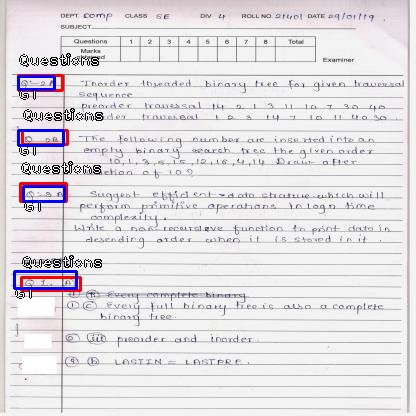 DEPT. Comp CLASS SE DIV 4 ROLL NO. 21401 DATE 29/01/19
SUBJECT
Questions 1 2 3 4 5 6 7 8 Total
Marks
Examiner
Questions
Q:-2A Inorder threaded binary tree for given traversal
GT
sequence
preorder traversal 14 2 1 3 11 10 7 30 40
order traversal 1 2 3 14 7 10 11 40 30.
Questions
Q. 2B The following number are inserted into an
GT
empty binary search tree the given order
10, 1, 3, 5, 15, 12, 16, 4, 14 Draw after
of 10?
Questions
Q:-3 Suggest efficient data strature which will
GT
perform primitive operations in logn time
complexity.
Write a non-recursive function to print data in
desending order when it is stored in it.
Questions
Q 1.
GT
Every complete binary
C Every full binary tree is also a complete
binary tree.
iii preorder and inorder.
b LASTIN = LASTPRE.